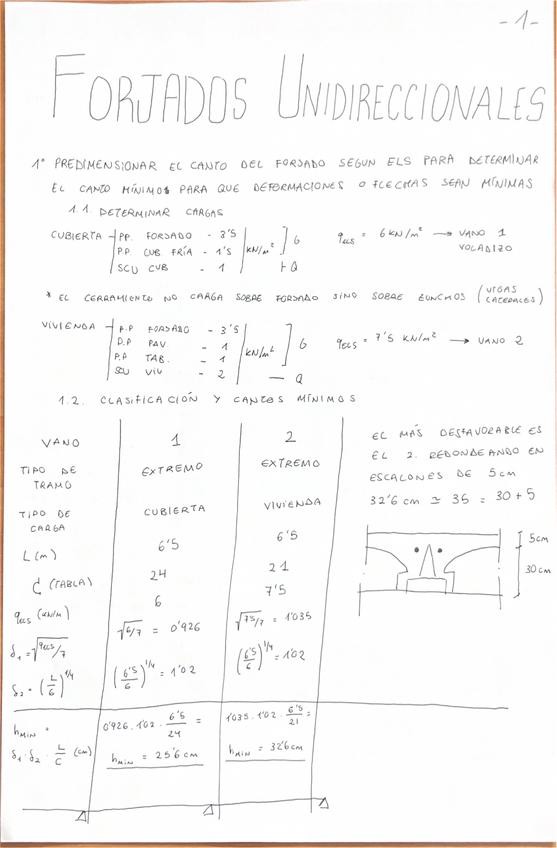 -1-
FORJADOS UNIDIRECCIONALES
1º PREDIMENSIONAR EL CANTO DEL FORJADO SEGUN ELS PARA DETERMINAR
EL CANTO MÍNIMOS PARA QUE DEFORMACIONES O FLECHAS SEAN MÍNIMAS
1.1. DETERMINAR CARGAS
CUBIERTA P.P. FORJADO - 3'5
P.P. CUB. FRÍA - 1'5
SCU CUB - 1
KN/m² G
Q
qELS = 6 KN/m² → VANO 1
VOLADIZO
* EL CERRAMIENTO NO CARGA SOBRE FORJADO SINO SOBRE ZUNCHOS (VIGAS
LATERALES)
VIVIENDA P.P FORJADO - 3'5
P.P PAV - 1
P.P TAB. - 1
SCU VIV - 2
KN/m² G
— Q
qELS = 7'5 KN/m² → VANO 2
1.2. CLASIFICACIÓN Y CANTOS MÍNIMOS
VANO 1 2
TIPO DE
TRAMO EXTREMO EXTREMO
TIPO DE
CARGA CUBIERTA VIVIENDA
L (m) 6'5 6'5
C (TABLA) 24 21
qELS (KN/m) 6 7'5
δ₁ = √qELS/7 √6/7 = 0'926 √7'5/7 = 1'035
δ₂ = (L/6)^1/4 (6'5/6)^1/4 = 1'02 (6'5/6)^1/4 = 1'02
hMIN =
δ₁ · δ₂ · L/C (cm)
0'926 · 1'02 · 6'5/24 =
hMIN = 25'6 cm
1'035 · 1'02 · 6'5/21 =
hMIN = 32'6 cm
EL MÁS DESFAVORABLE ES
EL 2. REDONDEANDO EN
ESCALONES DE 5 cm
32'6 cm ≃ 35 = 30 + 5
5 cm
30 cm